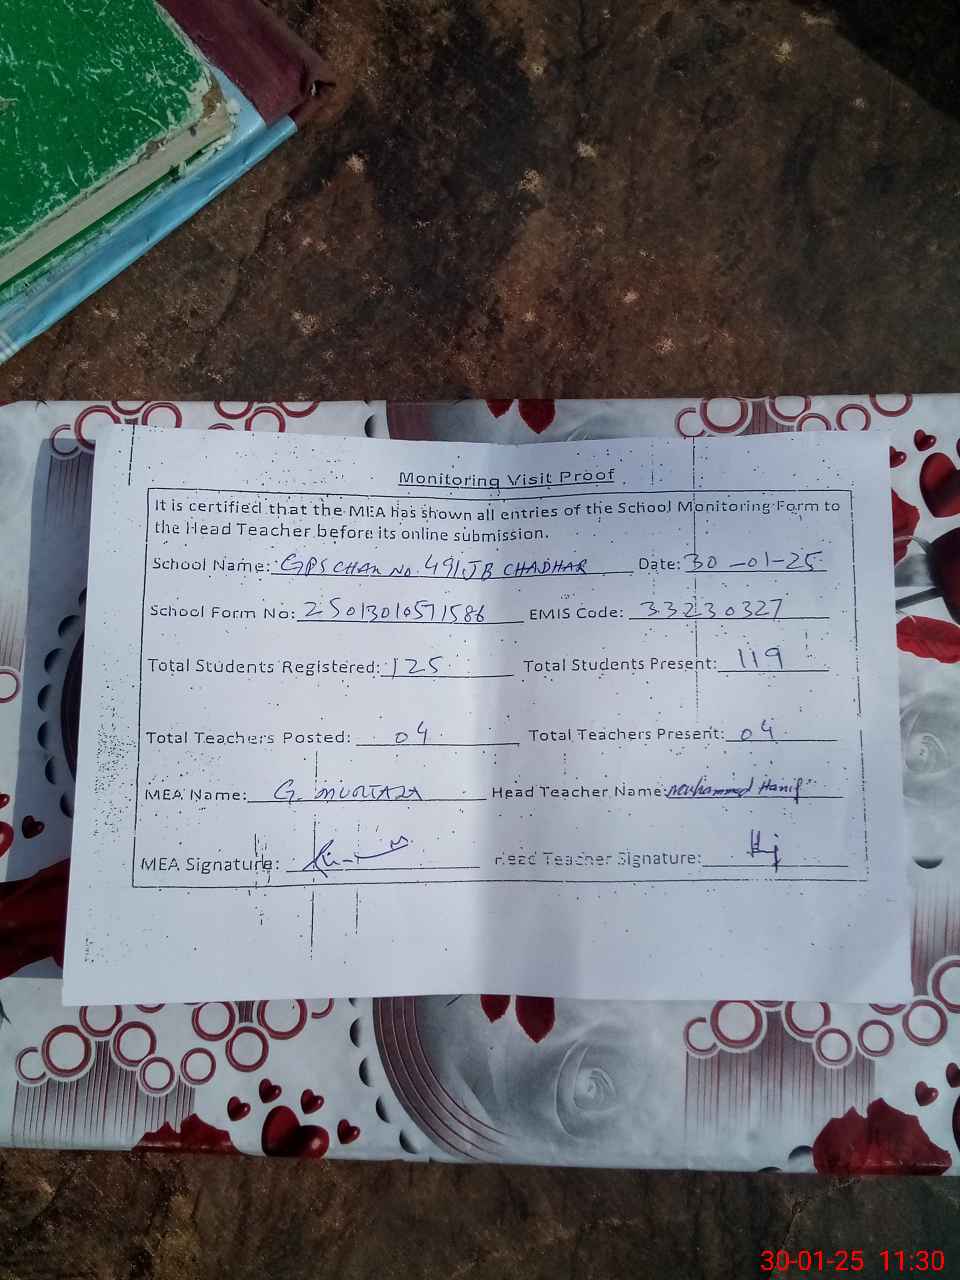 Monitoring Visit Proof
It is certified that the MEA has shown all entries of the School Monitoring Form to
the Head Teacher before its online submission.
School Name: GPS CHAK No. 491 JB CHADHAR Date: 30-01-25
School Form No: 2501301057 1586 EMIS Code: 33230327
Total Students Registered: 125 Total Students Present: 119
Total Teachers Posted: 04 Total Teachers Present: 04
MEA Name: G. MURTAZA Head Teacher Name: Muhammad Hanif
MEA Signature: Head Teacher Signature:
30-01-25 11:30